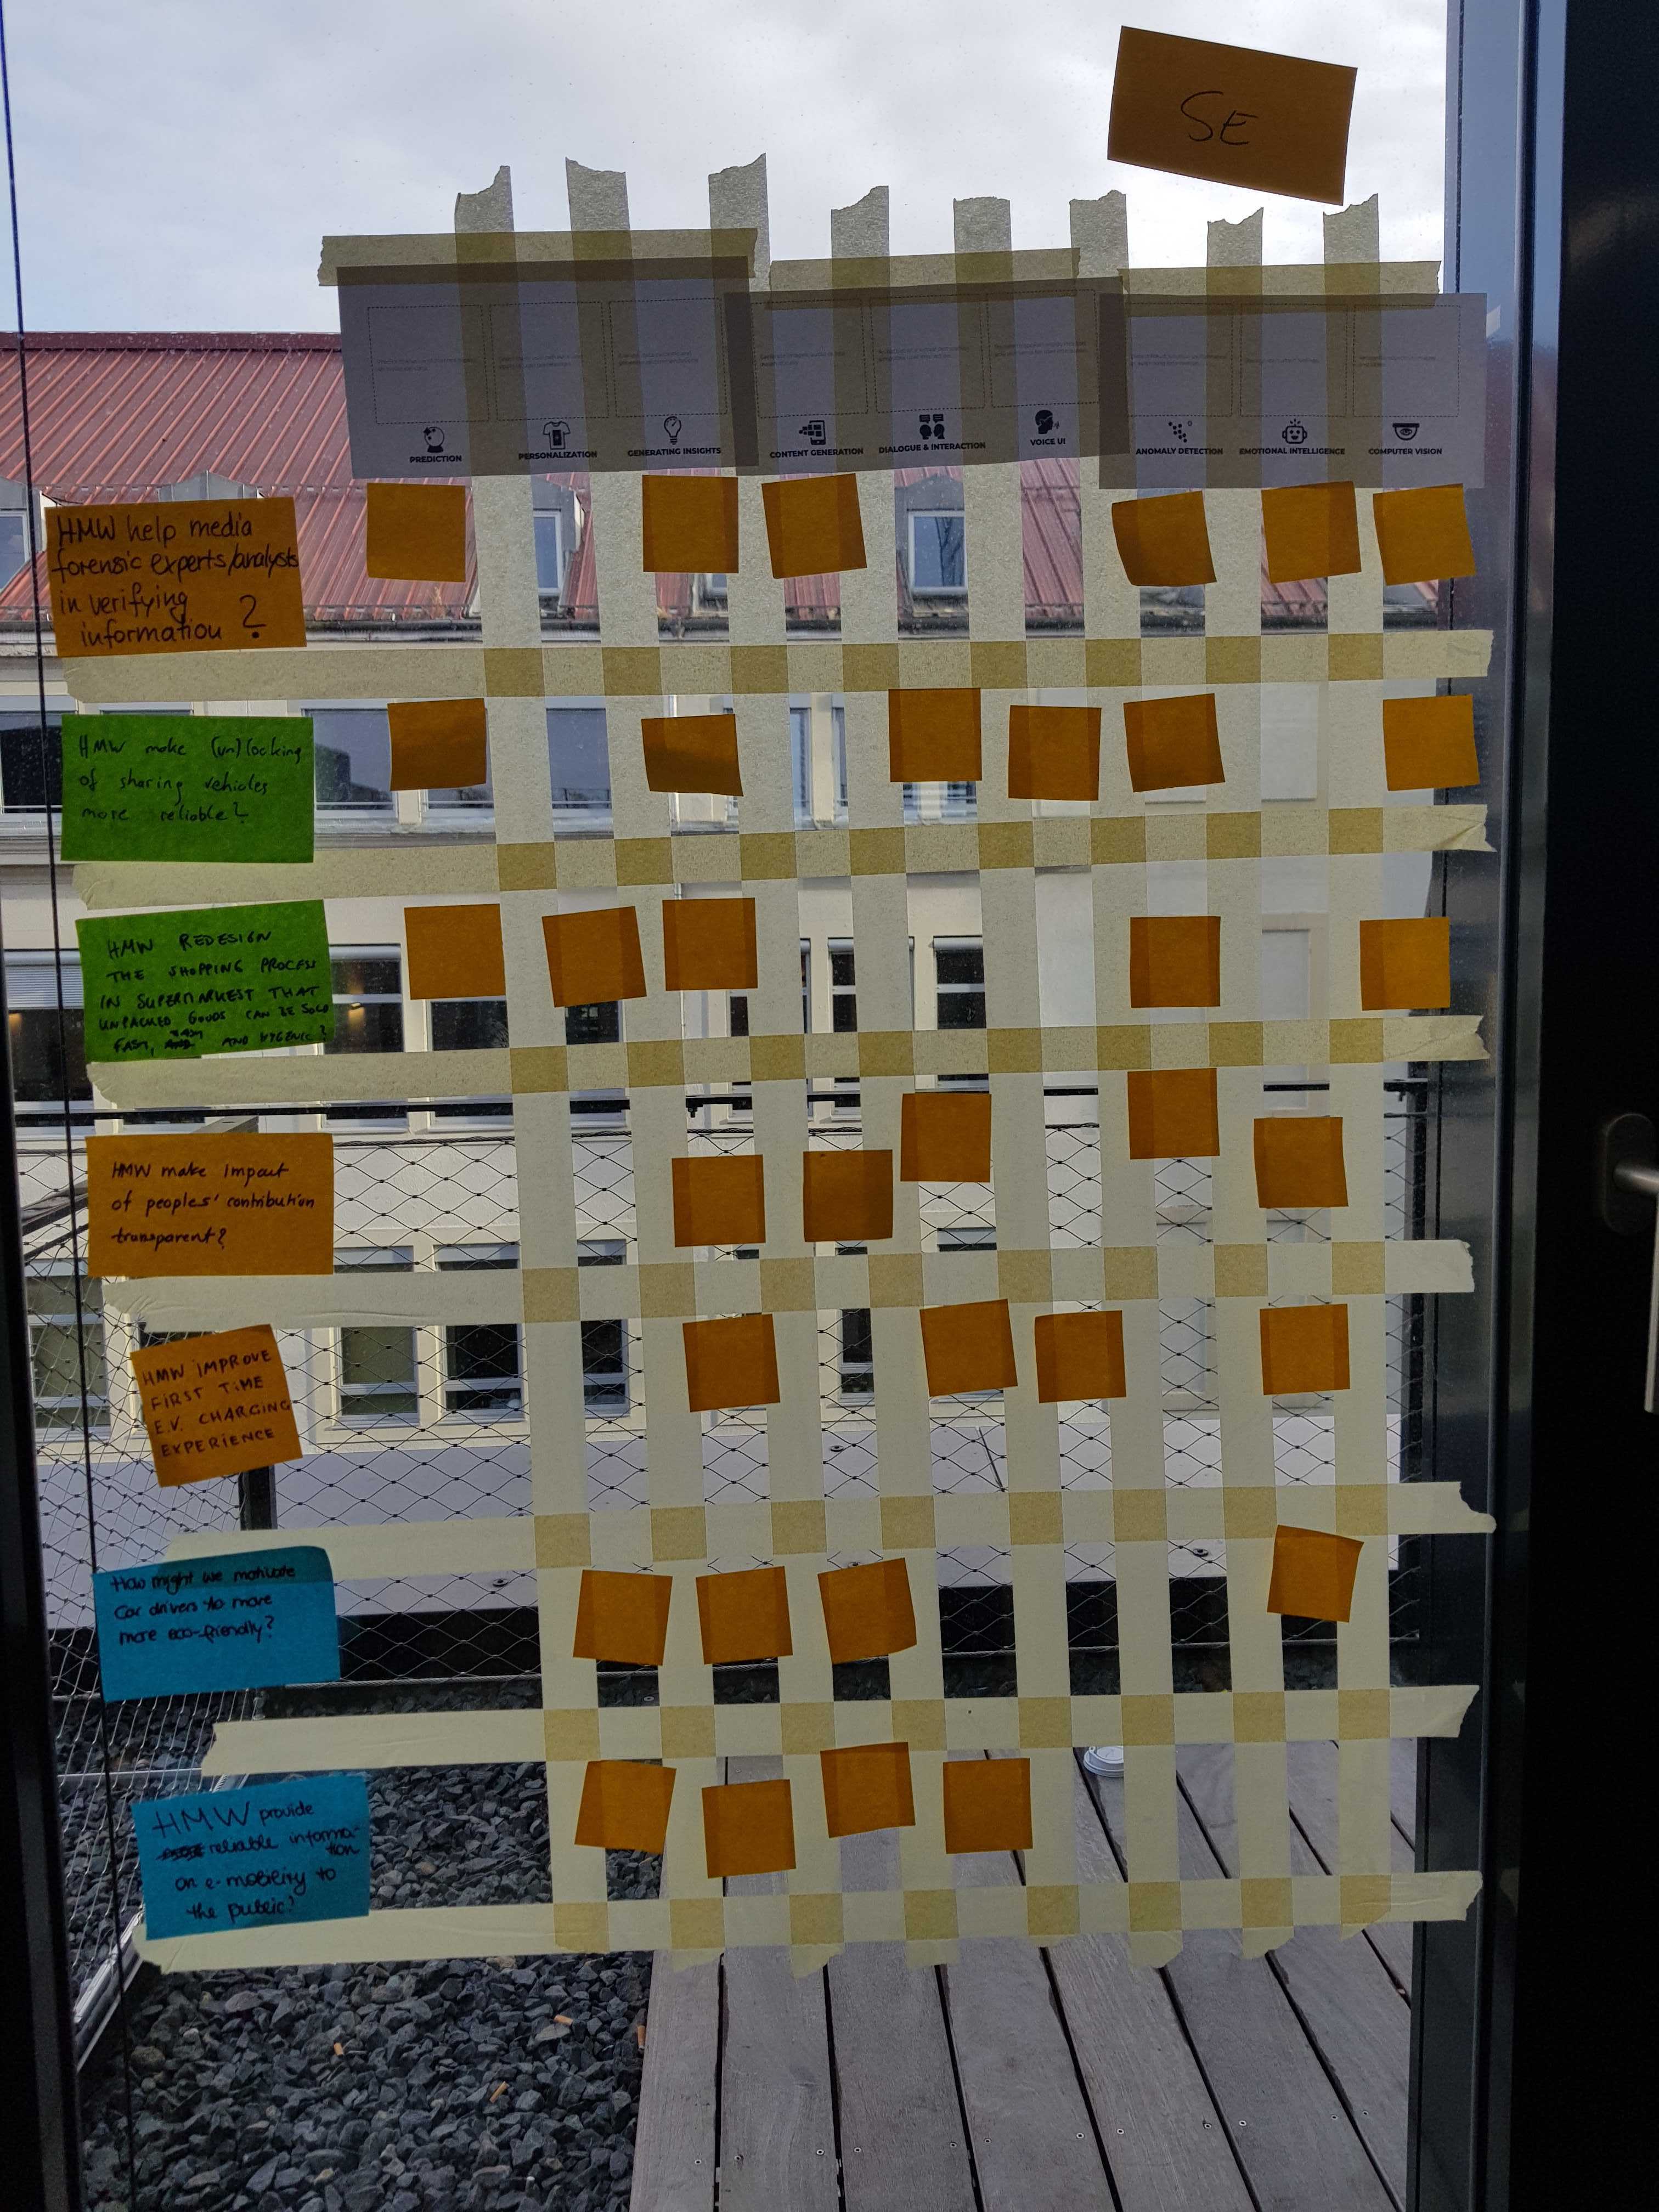 SE
PREDICTION
PERSONALIZATION
GENERATING INSIGHTS
CONTENT GENERATION
DIALOGUE & INTERACTION
VOICE UI
ANOMALY DETECTION
EMOTIONAL INTELLIGENCE
COMPUTER VISION
HMW help media
forensic experts/analysts
in verifying
information ?
HMW make (un)locking
of sharing vehicles
more reliable?
HMW REDESIGN
THE SHOPPING PROCESS
IN SUPERMARKEST THAT
UNPACKED GOODS CAN BE SOLD
FAST, AND HYGENIC?
HMW make impact
of peoples' contribution
transparent?
HMW IMPROVE
FIRST TIME
E.V. CHARGING
EXPERIENCE
How might we motivate
Car drivers to more
more eco-friendly?
HMW provide
reliable informa-
tion
on e-mobility to
the public?